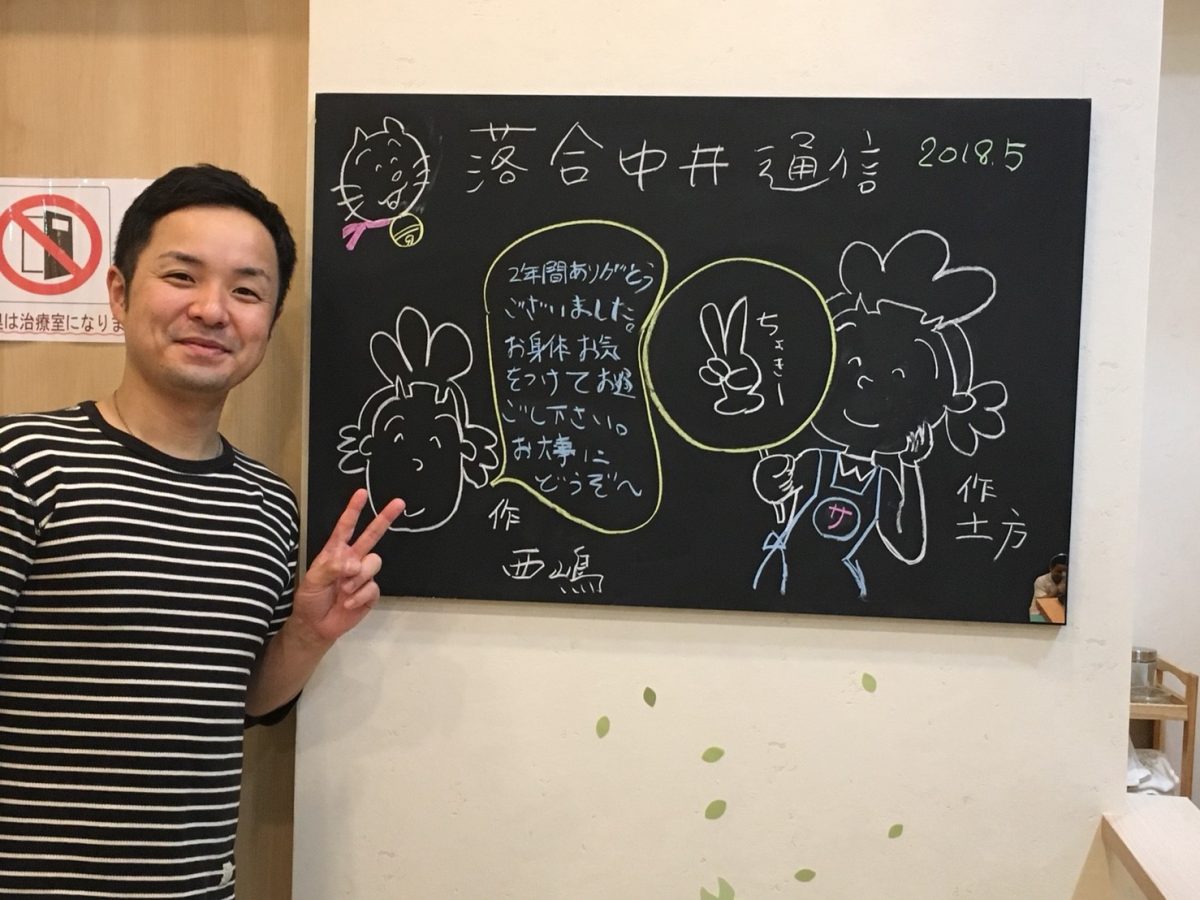 落合中井通信 2018.5
2年間ありがとう
ございました。
お身体お気
をつけてお過
ごし下さい。
お大事に
どうぞへ
作
西嶋
ちょきー
サ
作
土方
は治療室になりま